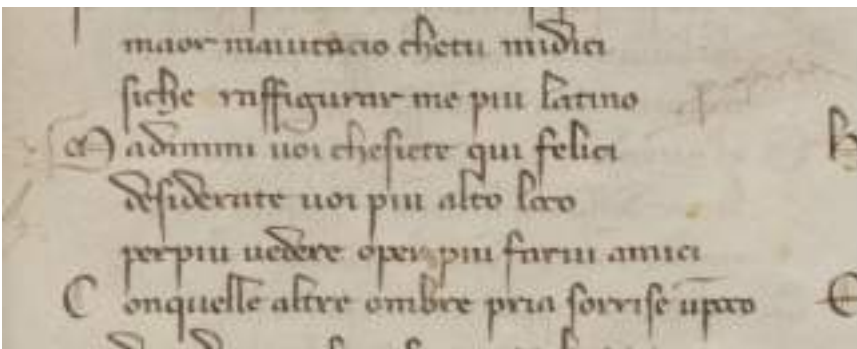 maor maiutacio chetu midici
siche raffigurar me piu latino
M adimmi uoi chesiete qui felici
desiderate uoi piu alto loco
perpiu uedere oper piu farui amici
C onquelle altre ombre pria sorrise ūpoco